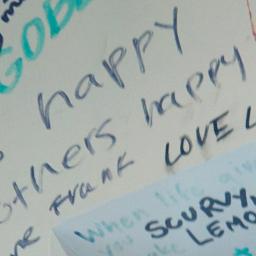 GOD
happy
others happy
Frank LOVE L
When life give
you SCURVY,
LEMO